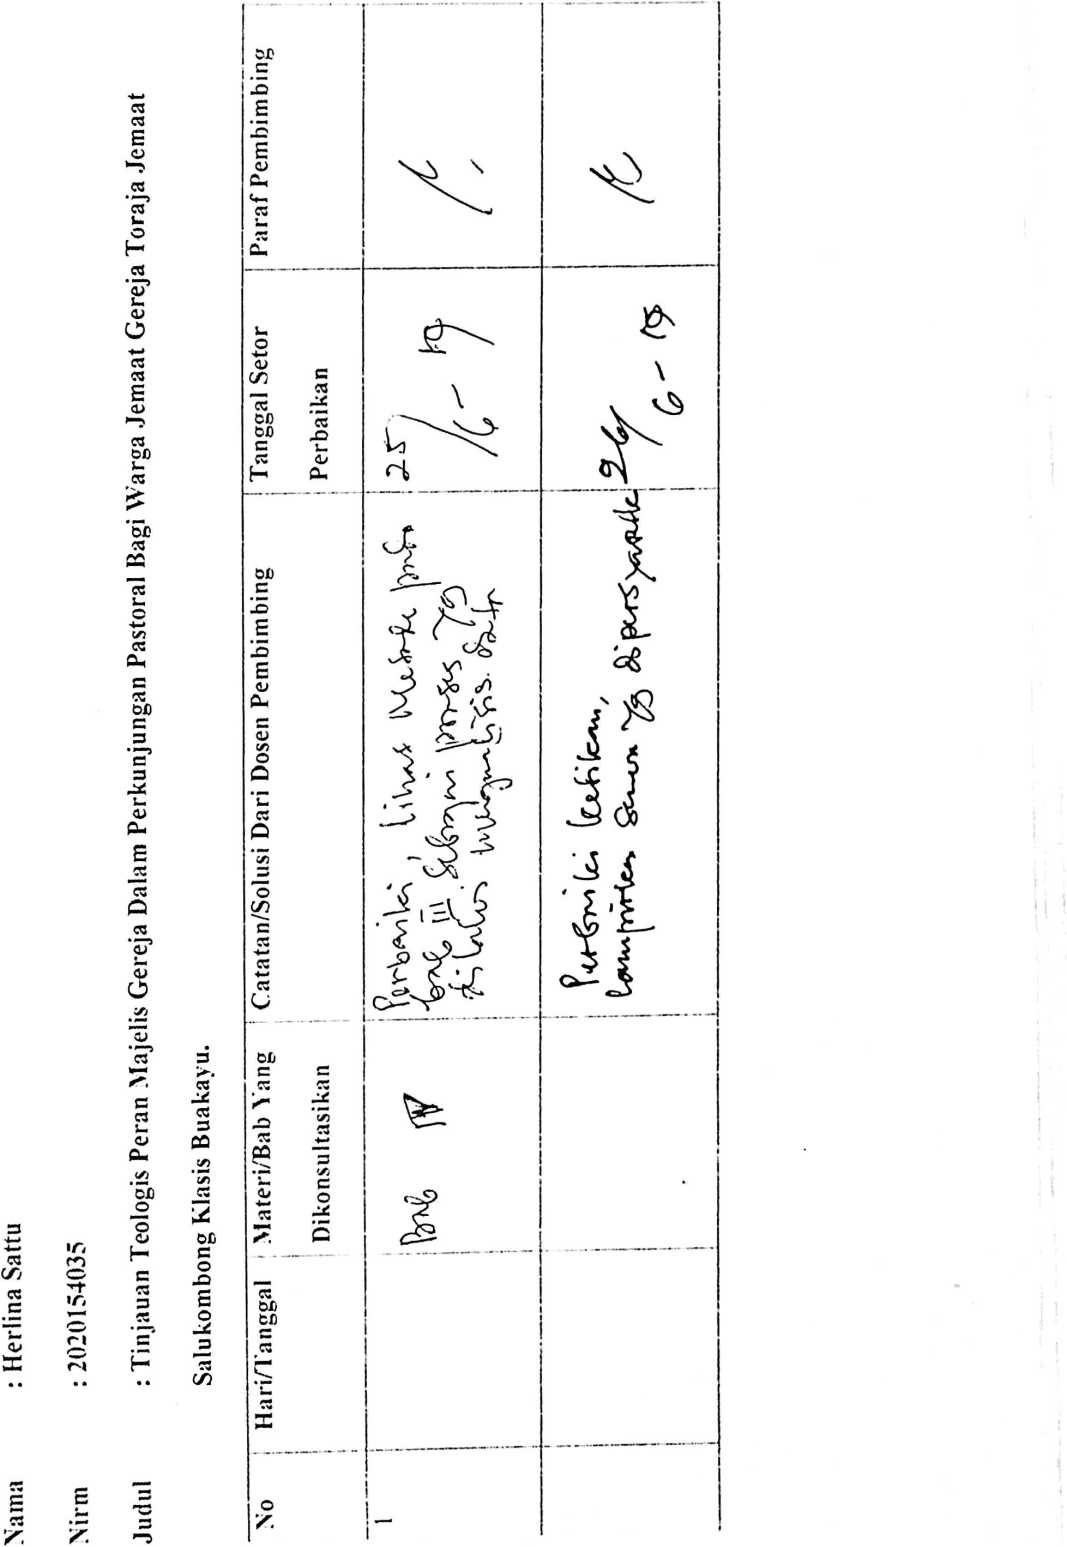 Nama : Herlina Sattu
Nirm : 2020154035
Judul : Tinjauan Teologis Peran Majelis Gereja Dalam Perkunjungan Pastoral Bagi Warga Jemaat Gereja Toraja Jemaat
Salukombong Klasis Buakayu.
No Hari/Tanggal Materi/Bab Yang Dikonsultasikan Catatan/Solusi Dari Dosen Pembimbing Tanggal Setor Perbaikan Paraf Pembimbing
1 Bab IV
Perbaiki, lihat Metode pada
bab III sebagai proses yg
di lalui menganalisis data
25/6-19
Perbaiki ketikan,
lampirkan semua yg dipersyaratk
26/6-19